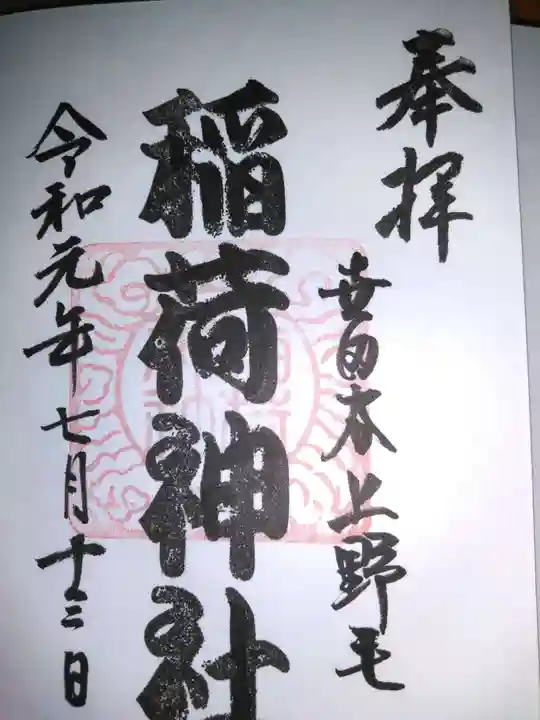 奉拝
世田谷上野毛
稲荷神社
令和元年七月十三日